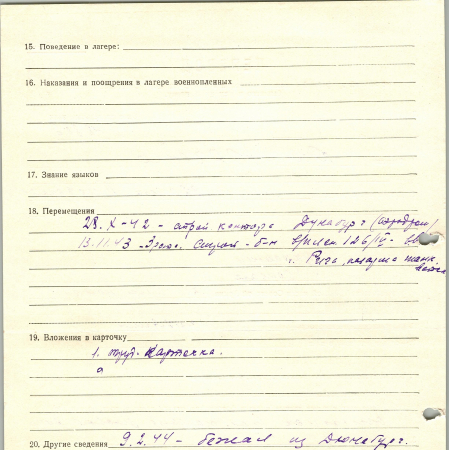 15. Поведение в лагере:
16. Наказания и поощрения в лагере военнопленных
17. Знание языков
18. Перемещения
28.X-42 - строй контора Дунабург (аэродром)
13.11.43
г. Рига, казарма
19. Вложения в карточку
1. труд. карточка.
20. Другие сведения 9.2.44 - бежал из Дюнабург.